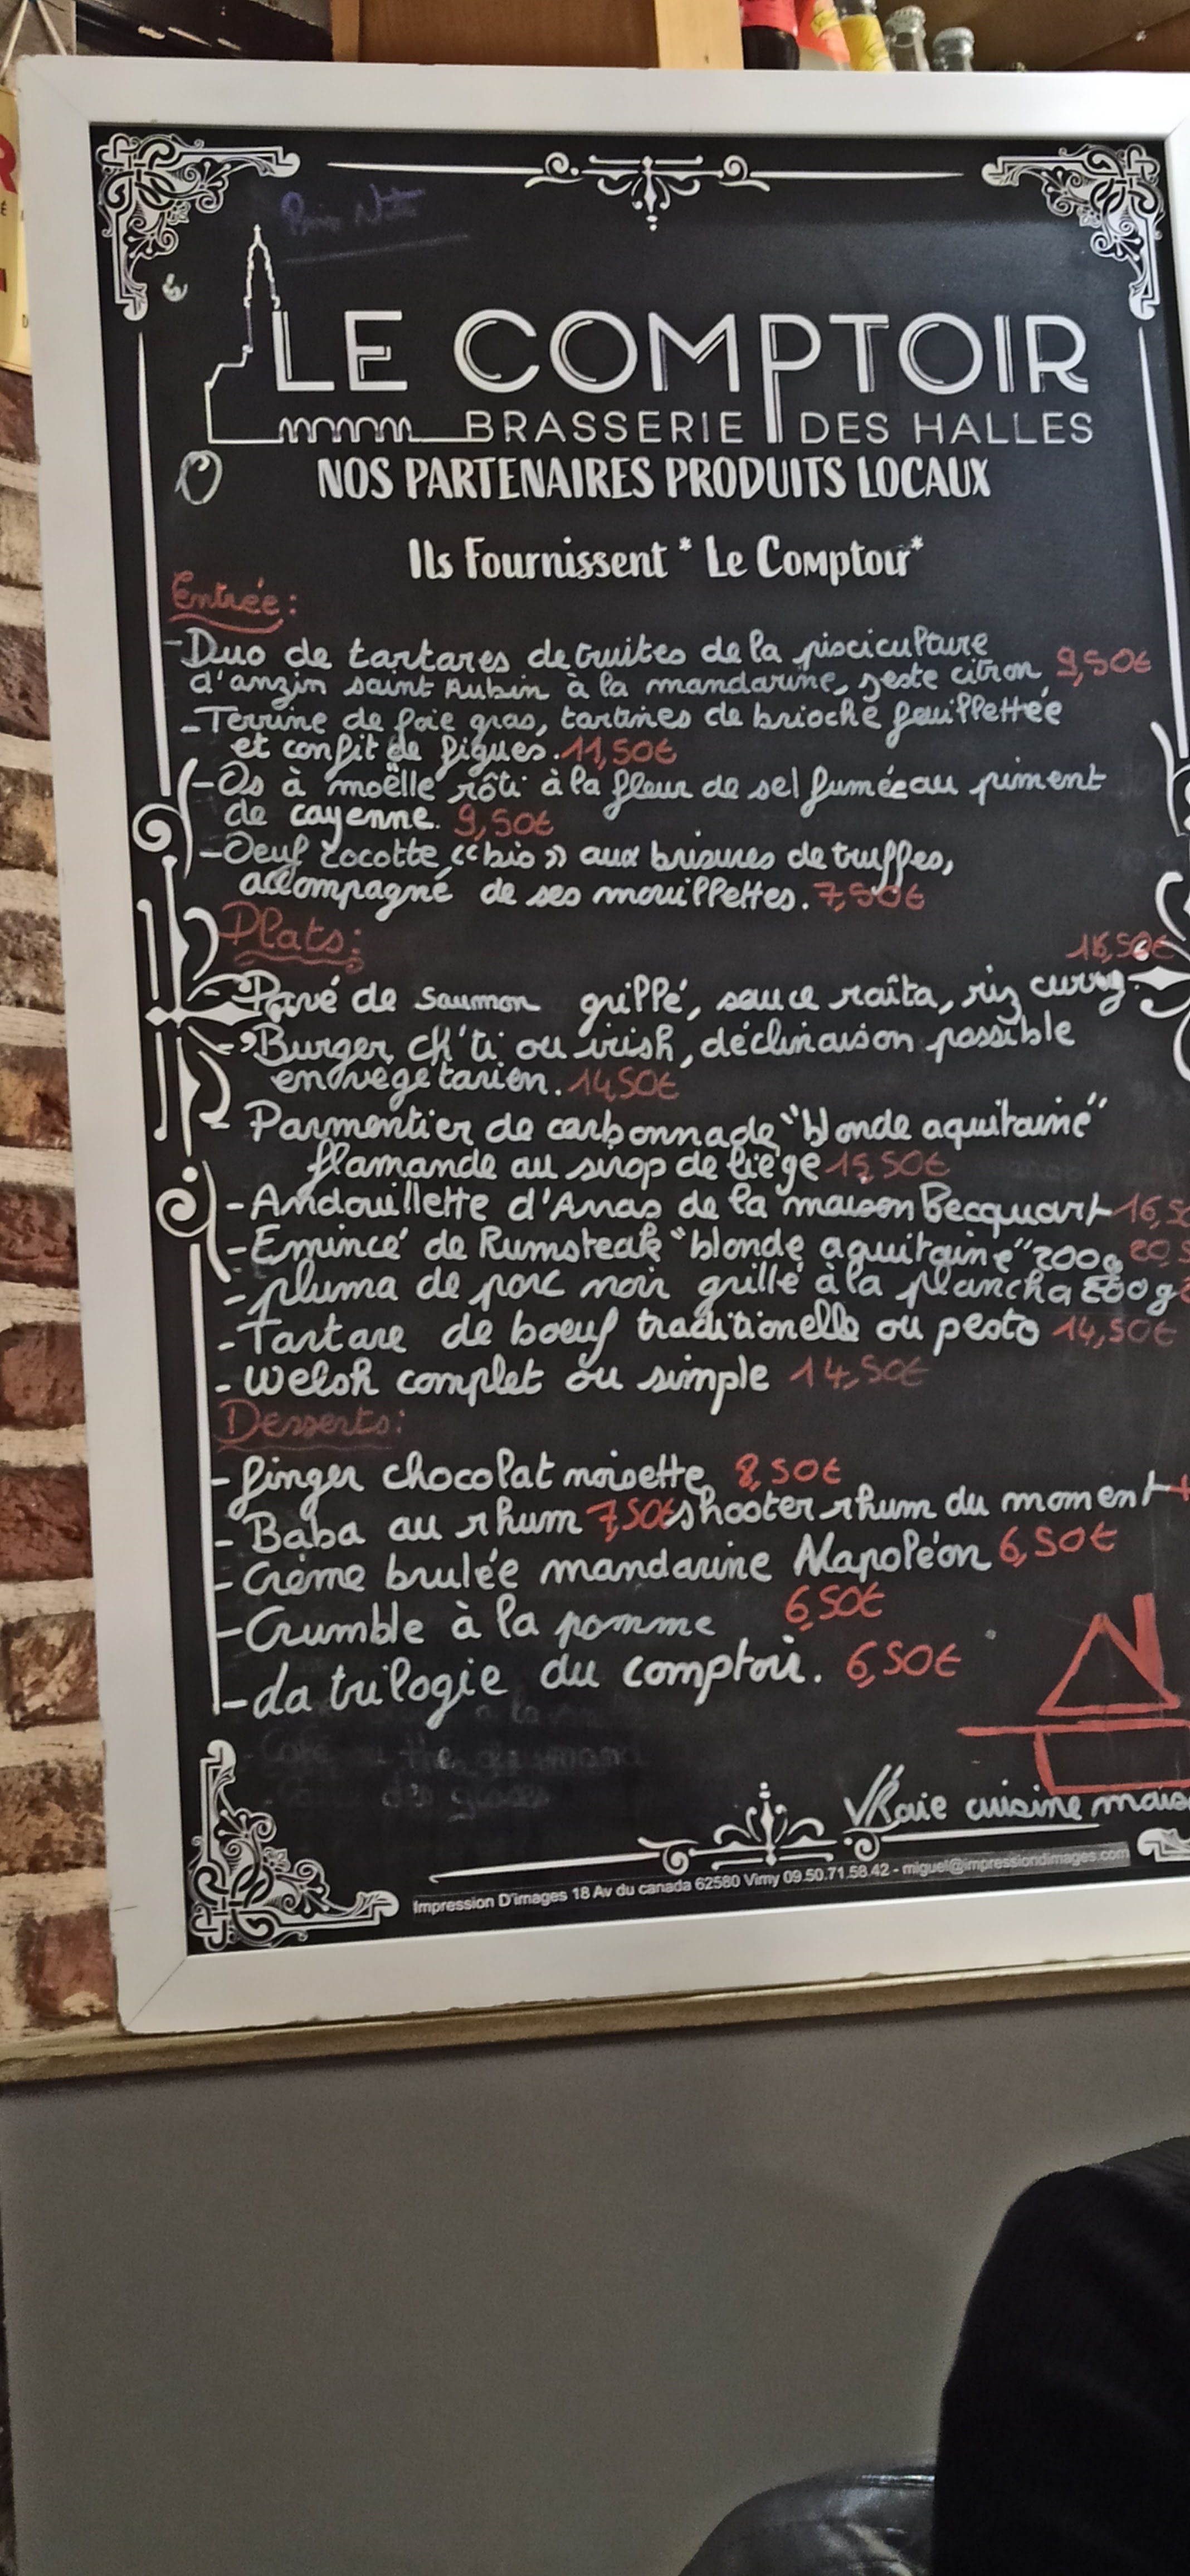 LE COMPTOIR
BRASSERIE DES HALLES
NOS PARTENAIRES PRODUITS LOCAUX
Ils Fournissent * Le Comptoir*
Entrée:
-Duo de tartares de truites de la pisciculture
d'anzin saint Aubin à la mandarine, zeste citron 9,50€
-Terrine de foie gras, tartines de brioche feuillettée
et confit de figues. 11,50€
-Os à moëlle rôti à la fleur de sel fumée au piment
de cayenne. 9,50€
-Oeuf cocotte, "bio" aux brisures de truffes,
accompagné de ses mouillettes. 7,50€
Plats:
-Pavé de saumon grillé, sauce raîta, riz curry
-Burger, Ch'ti ou irish, déclinaison possible
en végétarien. 14,50€
- Parmentier de carbonnade "blonde aquitaine"
flamande au sirop de liège 15,50€
-Andouillette d'Arras de la maison Becquart
-Emincé de Rumsteak "blonde aquitaine" 200g
-pluma de porc noir grillé à la plancha 200g
-Tartare de boeuf traditionelle ou pesto 14,50€
-Welsh complet ou simple 14,50€
Desserts:
-finger chocolat noisette 8,50€
-Baba au rhum 7,50€ shooter rhum du moment +
-Crème brulée mandarine Napoléon 6,50€
-Crumble à la pomme 6,50€
-La trilogie du comptoir. 6,50€
VRaie cuisine mais
Impression D'images 18 Av du canada 62580 Vimy 09.50.71.58.42 - miguel@impressiondimages.com